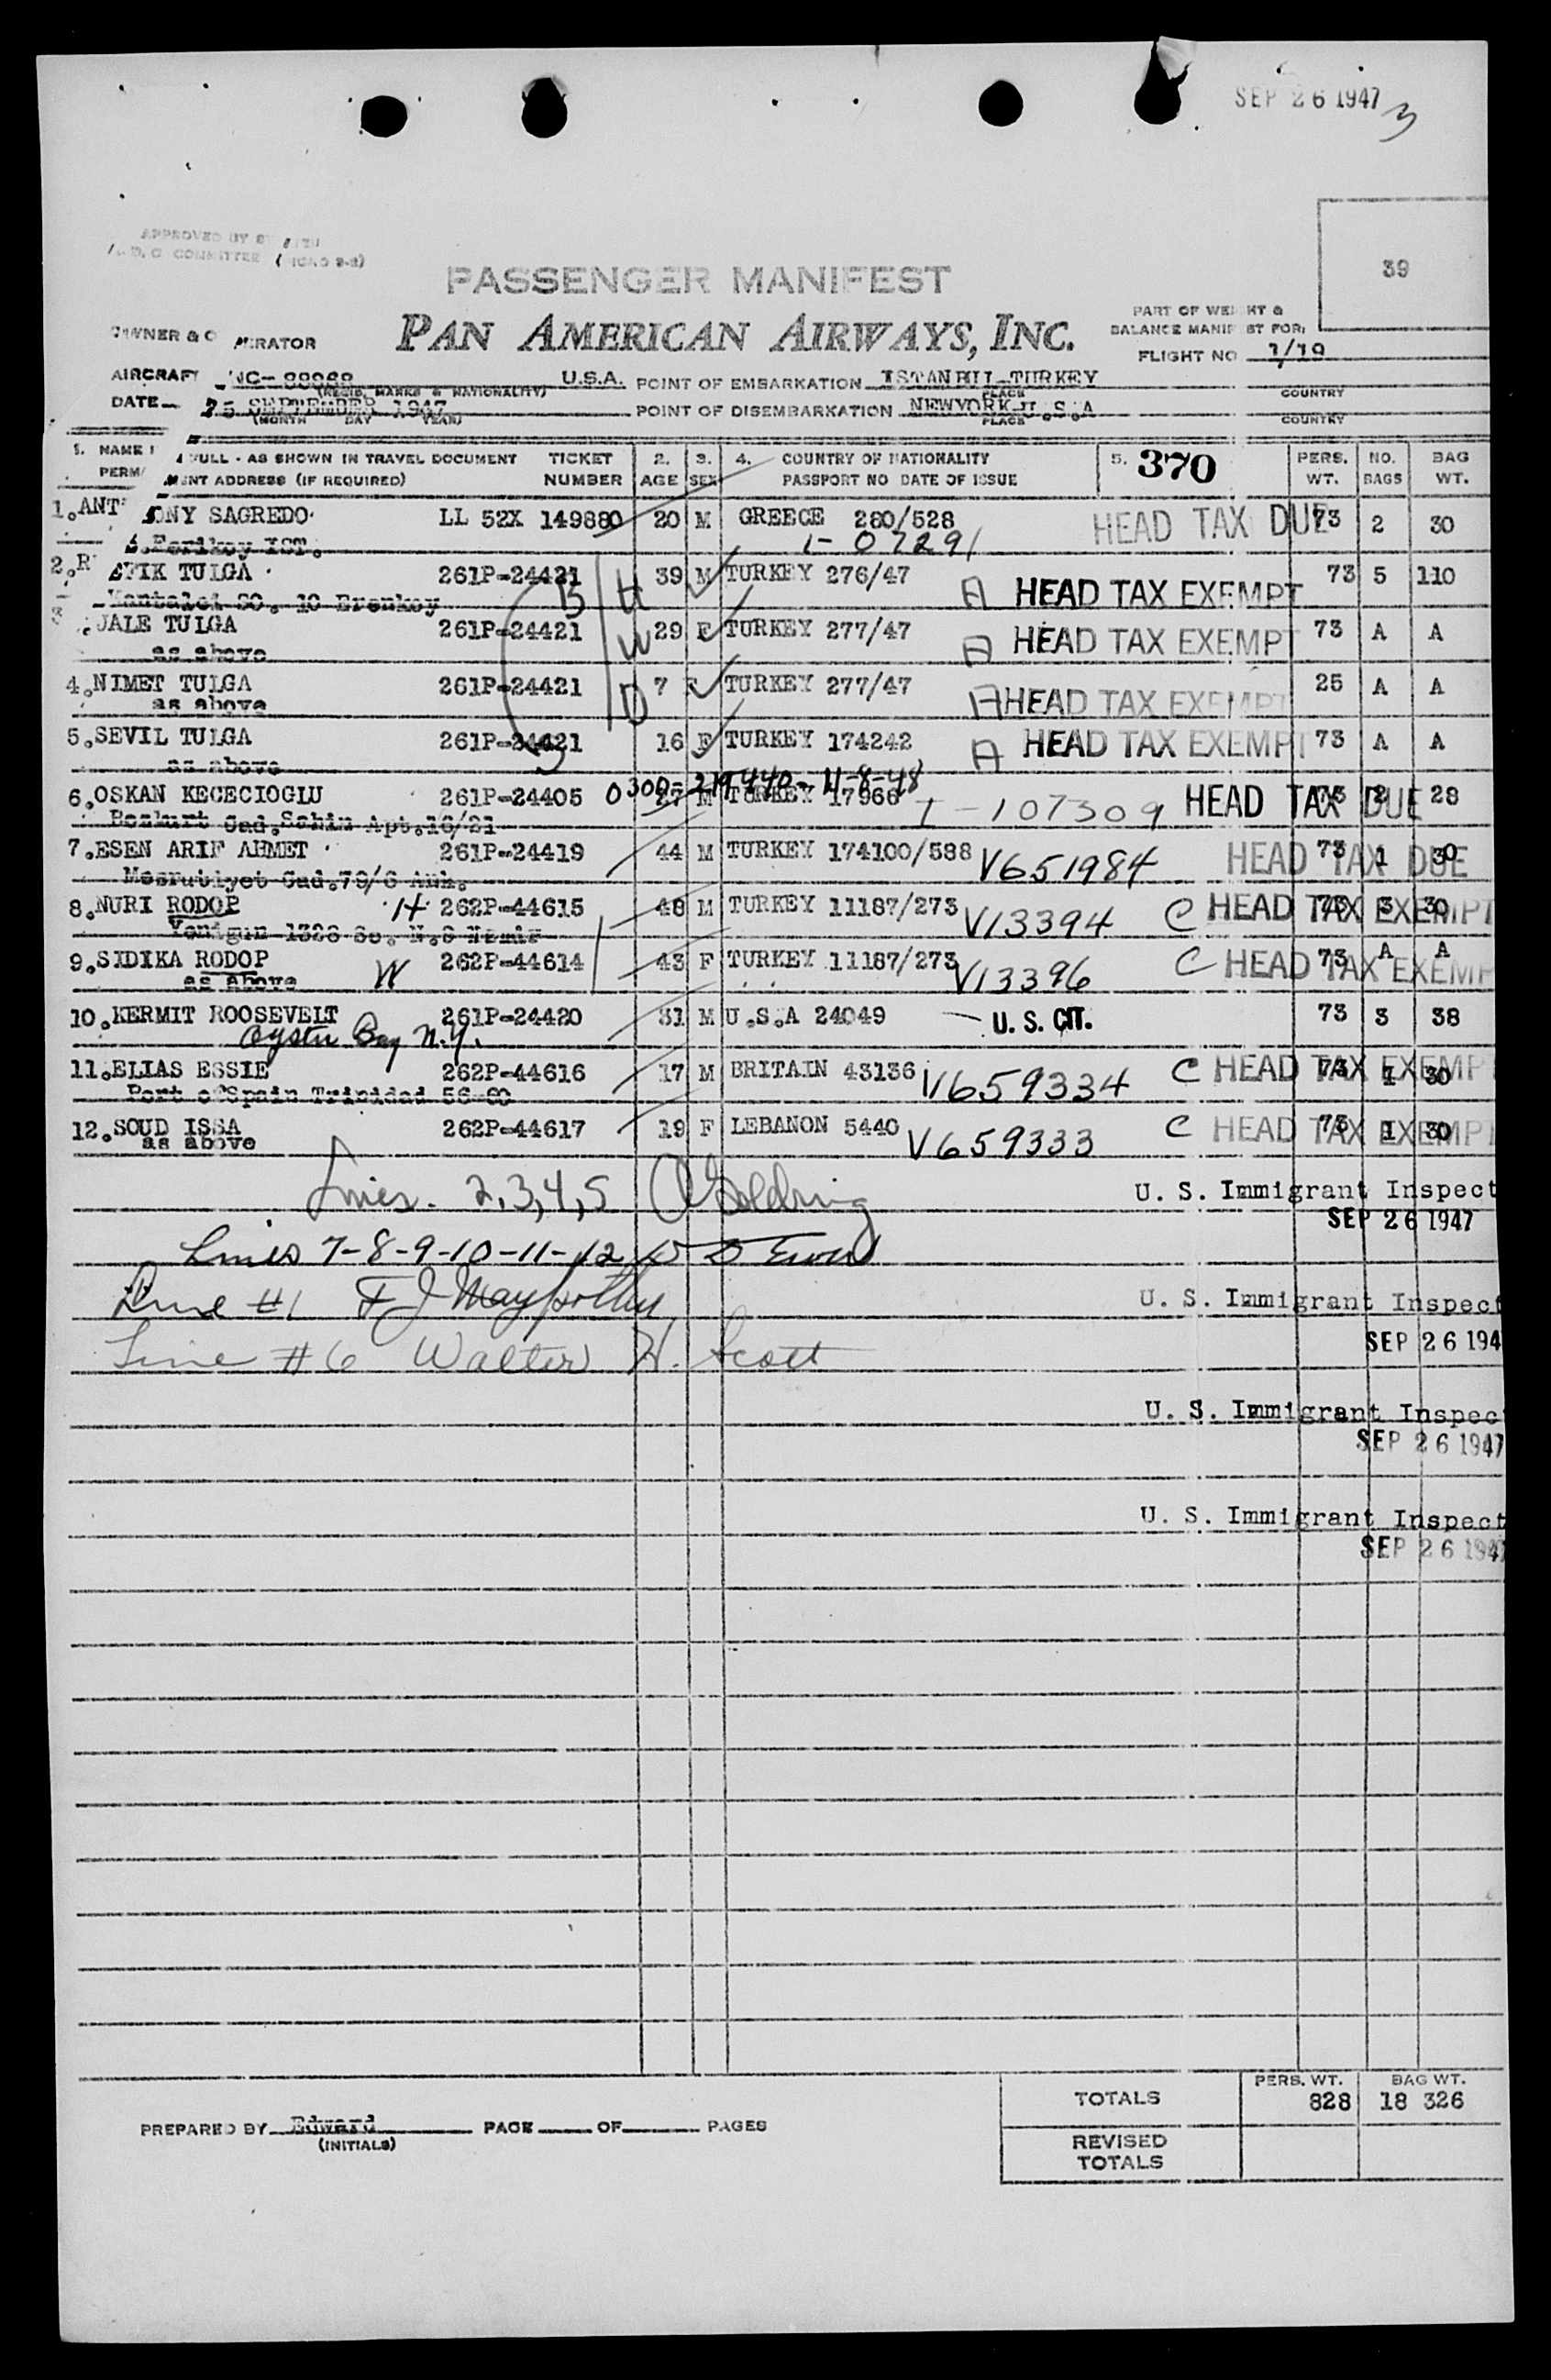 SEP 26 1947
3
APPROVED BY
COMMITTEE
39
PASSENGER MANIFEST
OWNER & OPERATOR
PAN AMERICAN AIRWAYS, INC.
PART OF WEIGHT &
BALANCE MANIFEST FOR:
FLIGHT NO 1/19
AIRCRAFT U.S.A. POINT OF EMBARKATION ISTANBUL-TURKEY
(REGIS. MARKS & NATIONALITY) PLACE COUNTRY
DATE 25 SEPTEMBER 1947 POINT OF DISEMBARKATION NEWYORK U.S.A
(MONTH DAY YEAR) PLACE COUNTRY
1. NAME IN FULL - AS SHOWN IN TRAVEL DOCUMENT TICKET 2. 3. 4. COUNTRY OF NATIONALITY 5. 370 PERS. NO. BAG
PERMANENT ADDRESS (IF REQUIRED) NUMBER AGE SEX PASSPORT NO DATE OF ISSUE WT. BAGS WT.
1. ANTHONY SAGREDO LL 52X 149880 20 M GREECE 280/528 HEAD TAX DUE 73 2 30
Ferikoy IST.
2. REFIK TULGA 261P-24421 H 39 M TURKEY 276/47 A HEAD TAX EXEMPT 73 5 110
10 Erenkoy
3. JALE TULGA 261P-24421 W 29 F TURKEY 277/47 A HEAD TAX EXEMPT 73 A A
as above
4. NIMET TULGA 261P-24421 D 7 TURKEY 277/47 A HEAD TAX EXEMPT 25 A A
as above
5. SEVIL TULGA 261P-24421 16 F TURKEY 174242 A HEAD TAX EXEMPT 73 A A
as above
0300-219440-11-8-48
6. OSKAN KECECIOGLU 261P-24405 27 M TURKEY 17966 I-107309 HEAD TAX DUE 73 2 28
Bozkurt Cad. Sahin Apt. 16/21
7. ESEN ARIF AHMET 261P-24419 44 M TURKEY 174100/588 V651984 HEAD TAX DUE 73 1 30
Mesrutiyet Cad. 79/6 Ank.
8. NURI RODOP H 262P-44615 48 M TURKEY 11187/273 V13394 C HEAD TAX EXEMPT 73 3 30
9. SIDIKA RODOP W 262P-44614 43 F TURKEY 11187/273 V13396 C HEAD TAX EXEMPT 73 A A
as above
10. KERMIT ROOSEVELT 261P-24420 31 M U.S.A 24049 U.S. CIT. 73 3 38
Oyster Bay N.Y.
11. ELIAS ESSIE 262P-44616 17 M BRITAIN 43136 V659334 C HEAD TAX EXEMPT 73 1 30
Port of Spain Trinidad 56-60
12. SOUD ISSA 262P-44617 19 F LEBANON 5440 V659333 C HEAD TAX EXEMPT 73 1 30
as above
Lines. 2,3,4,5 Goldring U. S. Immigrant Inspect
SEP 26 1947
Lines 7-8-9-10-11-12
Line #1 F J U. S. Immigrant Inspect
Line #6 Walter H. Scott SEP 26 194
U. S. Immigrant Inspec
SEP 26 1947
U. S. Immigrant Inspect
SEP 26 1947
PERS. WT. BAG WT.
TOTALS 828 18 326
PREPARED BY Edward PAGE OF PAGES
(INITIALS)
REVISED
TOTALS